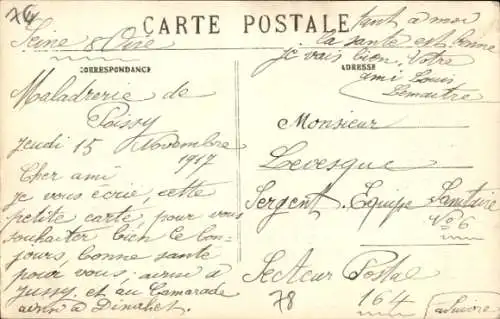 76
CARTE POSTALE
Seine & Oise
CORRESPONDANCE
Maladrerie de
Poissy
Jeudi 15 Novembre
1917
Cher ami
je vous écrie, cette
petite carte, pour vous
souhaiter bien le bon-
jours, bonne santé
pour vous,
Jussy, et au Camarade
à Dinahet.
tant a moi
la santé est bonne
je vais bien, Votre
ADRESSE
ami Louis
Lemaitre
Monsieur
Levesque
Sergent, Équipe Sanitaire
No 6
Secteur Postal
78
164
(à Suivre)